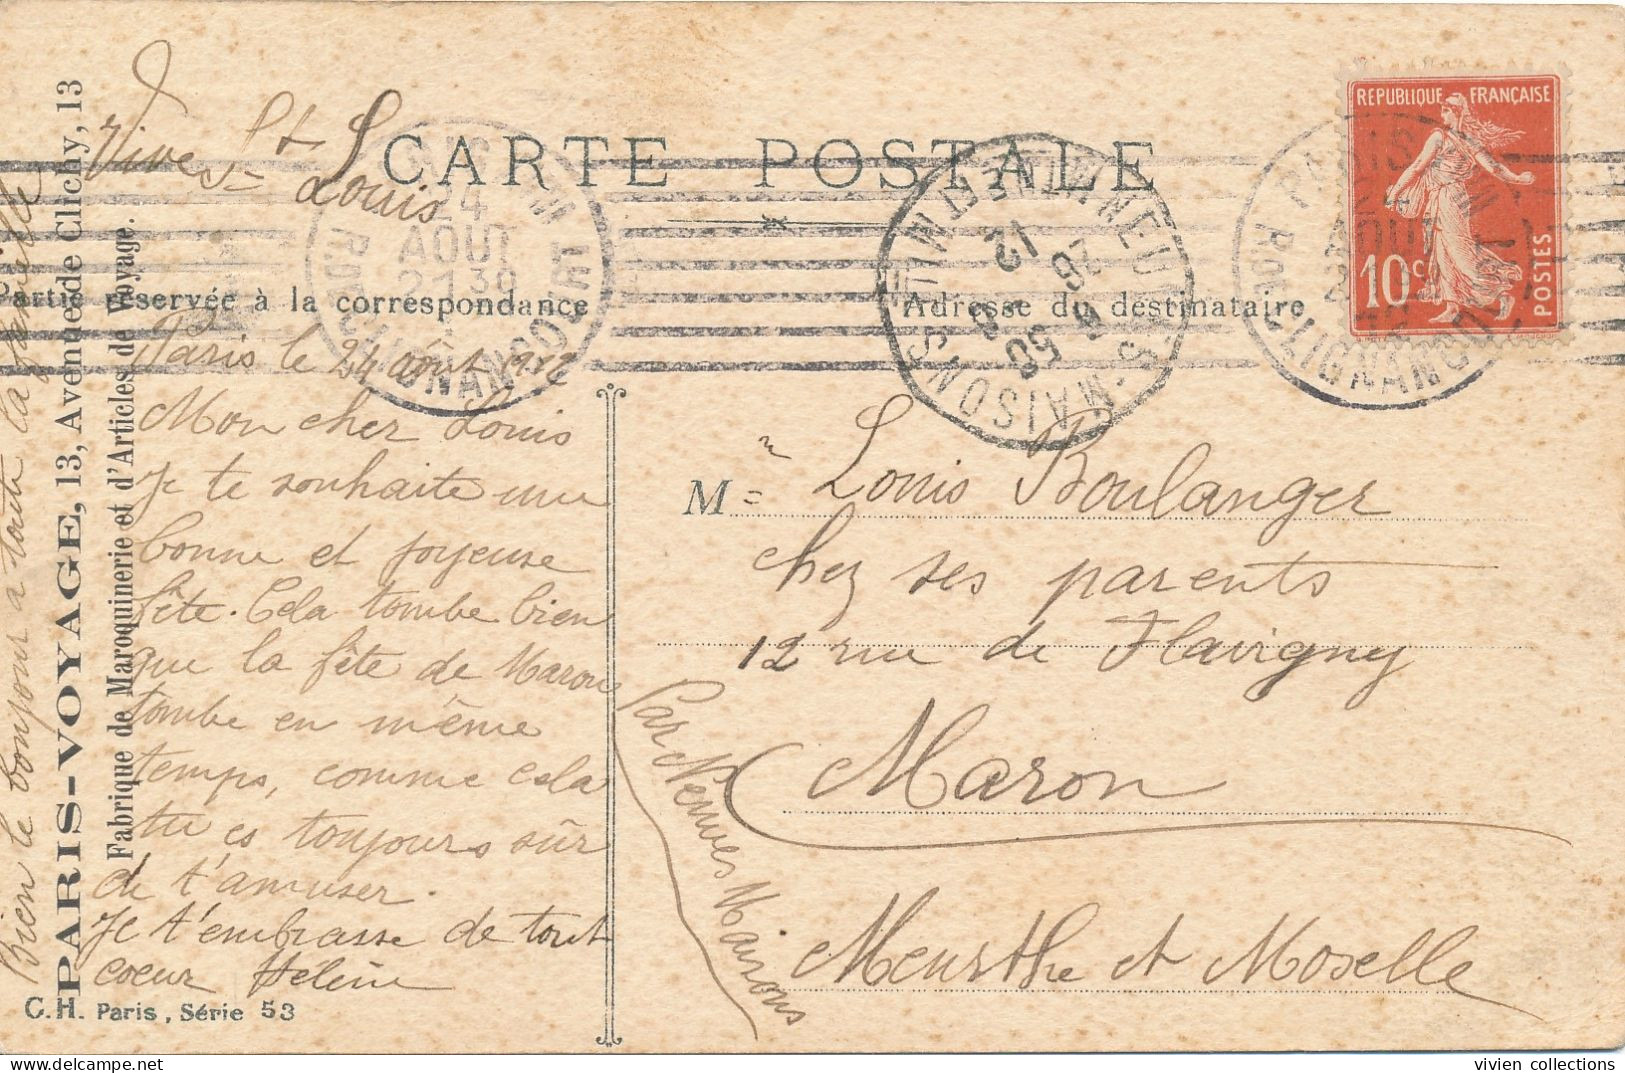 Vive St Louis
CARTE POSTALE
Partie réservée à la correspondance
Adresse du destinataire
REPUBLIQUE FRANÇAISE
10c
POSTES
24
AOUT
NEUVES-MAISONS
26
12
Paris le 24 août 1912
Mon cher Louis
Je te souhaite une
bonne et joyeuse
fête. Cela tombe bien
que la fête de Maron
tombe en même
temps, comme cela
tu es toujours sûr
de t'amuser.
Je t'embrasse de tout
coeur Hélène
Bien le bonjour à toute la famille
PARIS-VOYAGE, 13, Avenue de Clichy, 13
Fabrique de Maroquinerie et d'Articles de Voyage.
C.H. Paris, Série 53
M r = Louis Boulanger
chez ses parents
12 rue de Flavigny
Maron
Par Neuves Maisons
Meurthe et Moselle
vivien collections